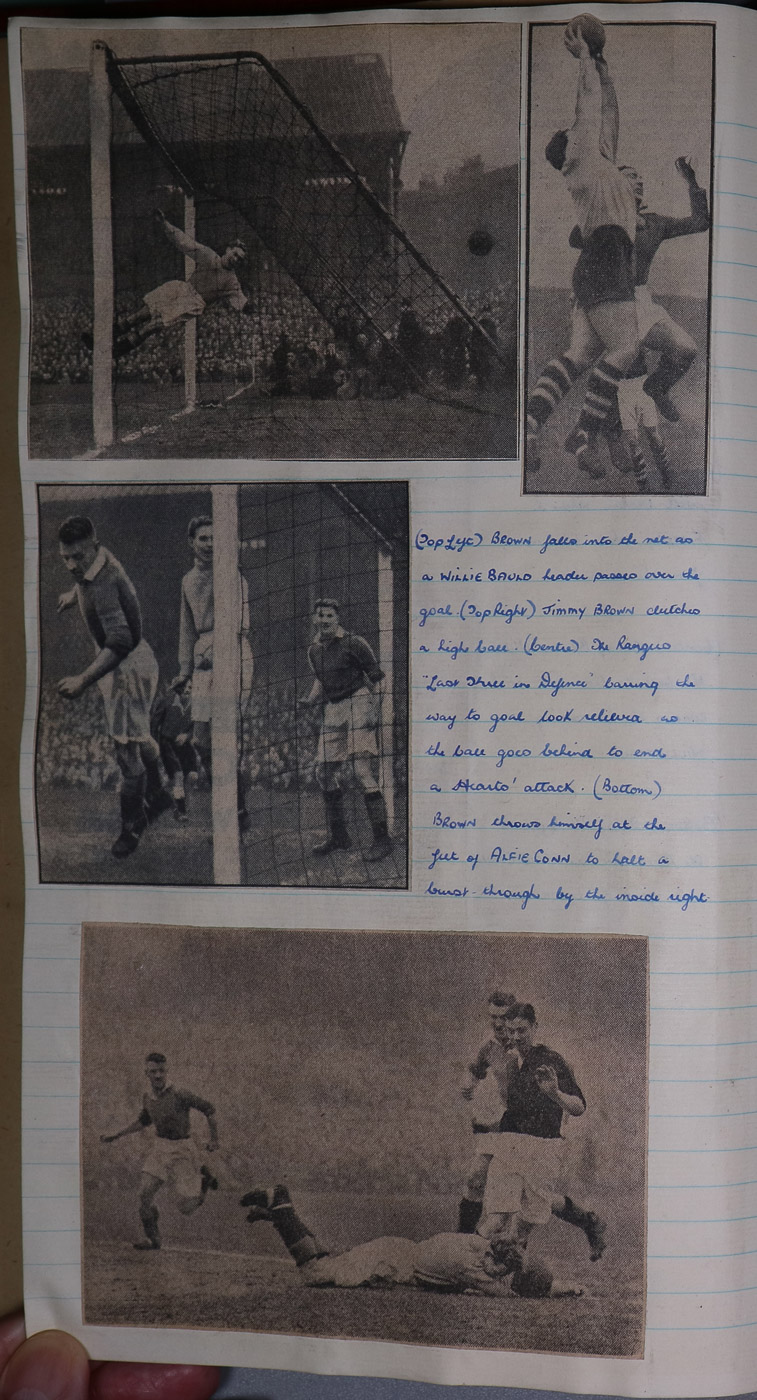 (Top Left) BROWN falls into the net as
a WILLIE BAULD header passes over the
goal. (Top Right) JIMMY BROWN clutches
a high ball. (Centre) The Rangers
"Last Three in Defence" barring the
way to goal look relieved as
the ball goes behind to end
a Hearts' attack. (Bottom)
BROWN throws himself at the
feet of ALFIE CONN to halt a
burst-through by the inside right